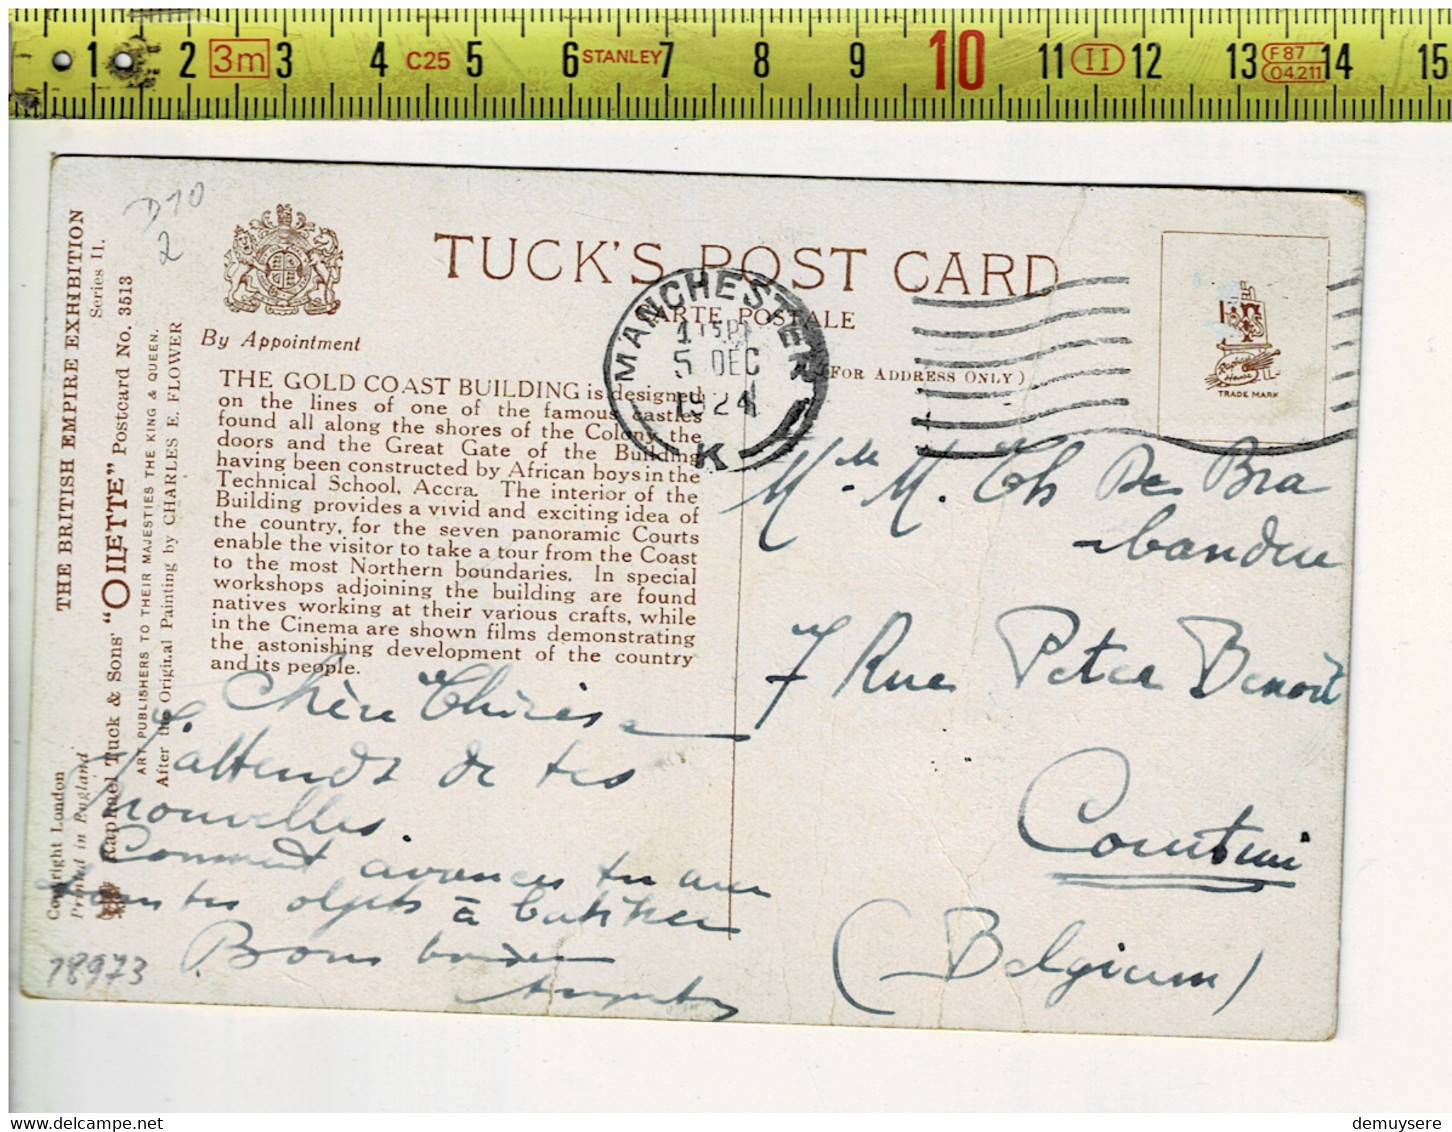 1 2 3m 3 4 C25 5 6 STANLEY 7 8 9 10 11 II 12 13 F 87 04.211 14 15
D10
2
THE BRITISH EMPIRE EXHIBITION
Series II.
Raphael Tuck & Sons' "OILETTE" Postcard No. 3513
ART PUBLISHERS TO THEIR MAJESTIES THE KING & QUEEN.
After the Original Painting by CHARLES E. FLOWER
Copyright London
Printed in England
By Appointment
TUCK'S POST CARD
CARTE POSTALE
(FOR ADDRESS ONLY)
MANCHESTER
5 DEC
1924
K
TRADE MARK
THE GOLD COAST BUILDING is designed
on the lines of one of the famous castles
found all along the shores of the Colony, the
doors and the Great Gate of the Building
having been constructed by African boys in the
Technical School, Accra. The interior of the
Building provides a vivid and exciting idea of
the country, for the seven panoramic Courts
enable the visitor to take a tour from the Coast
to the most Northern boundaries. In special
workshops adjoining the building are found
natives working at their various crafts, while
in the Cinema are shown films demonstrating
the astonishing development of the country
and its people.
Chère Thérèse
J'attends de tes
nouvelles.
Comment avances tu avec
tes objets à batiker
Bons
Mlle M. Th De Bra
bandere
7 Rue Peter Benoit
Courtrai
(Belgium)
18973
demuysere